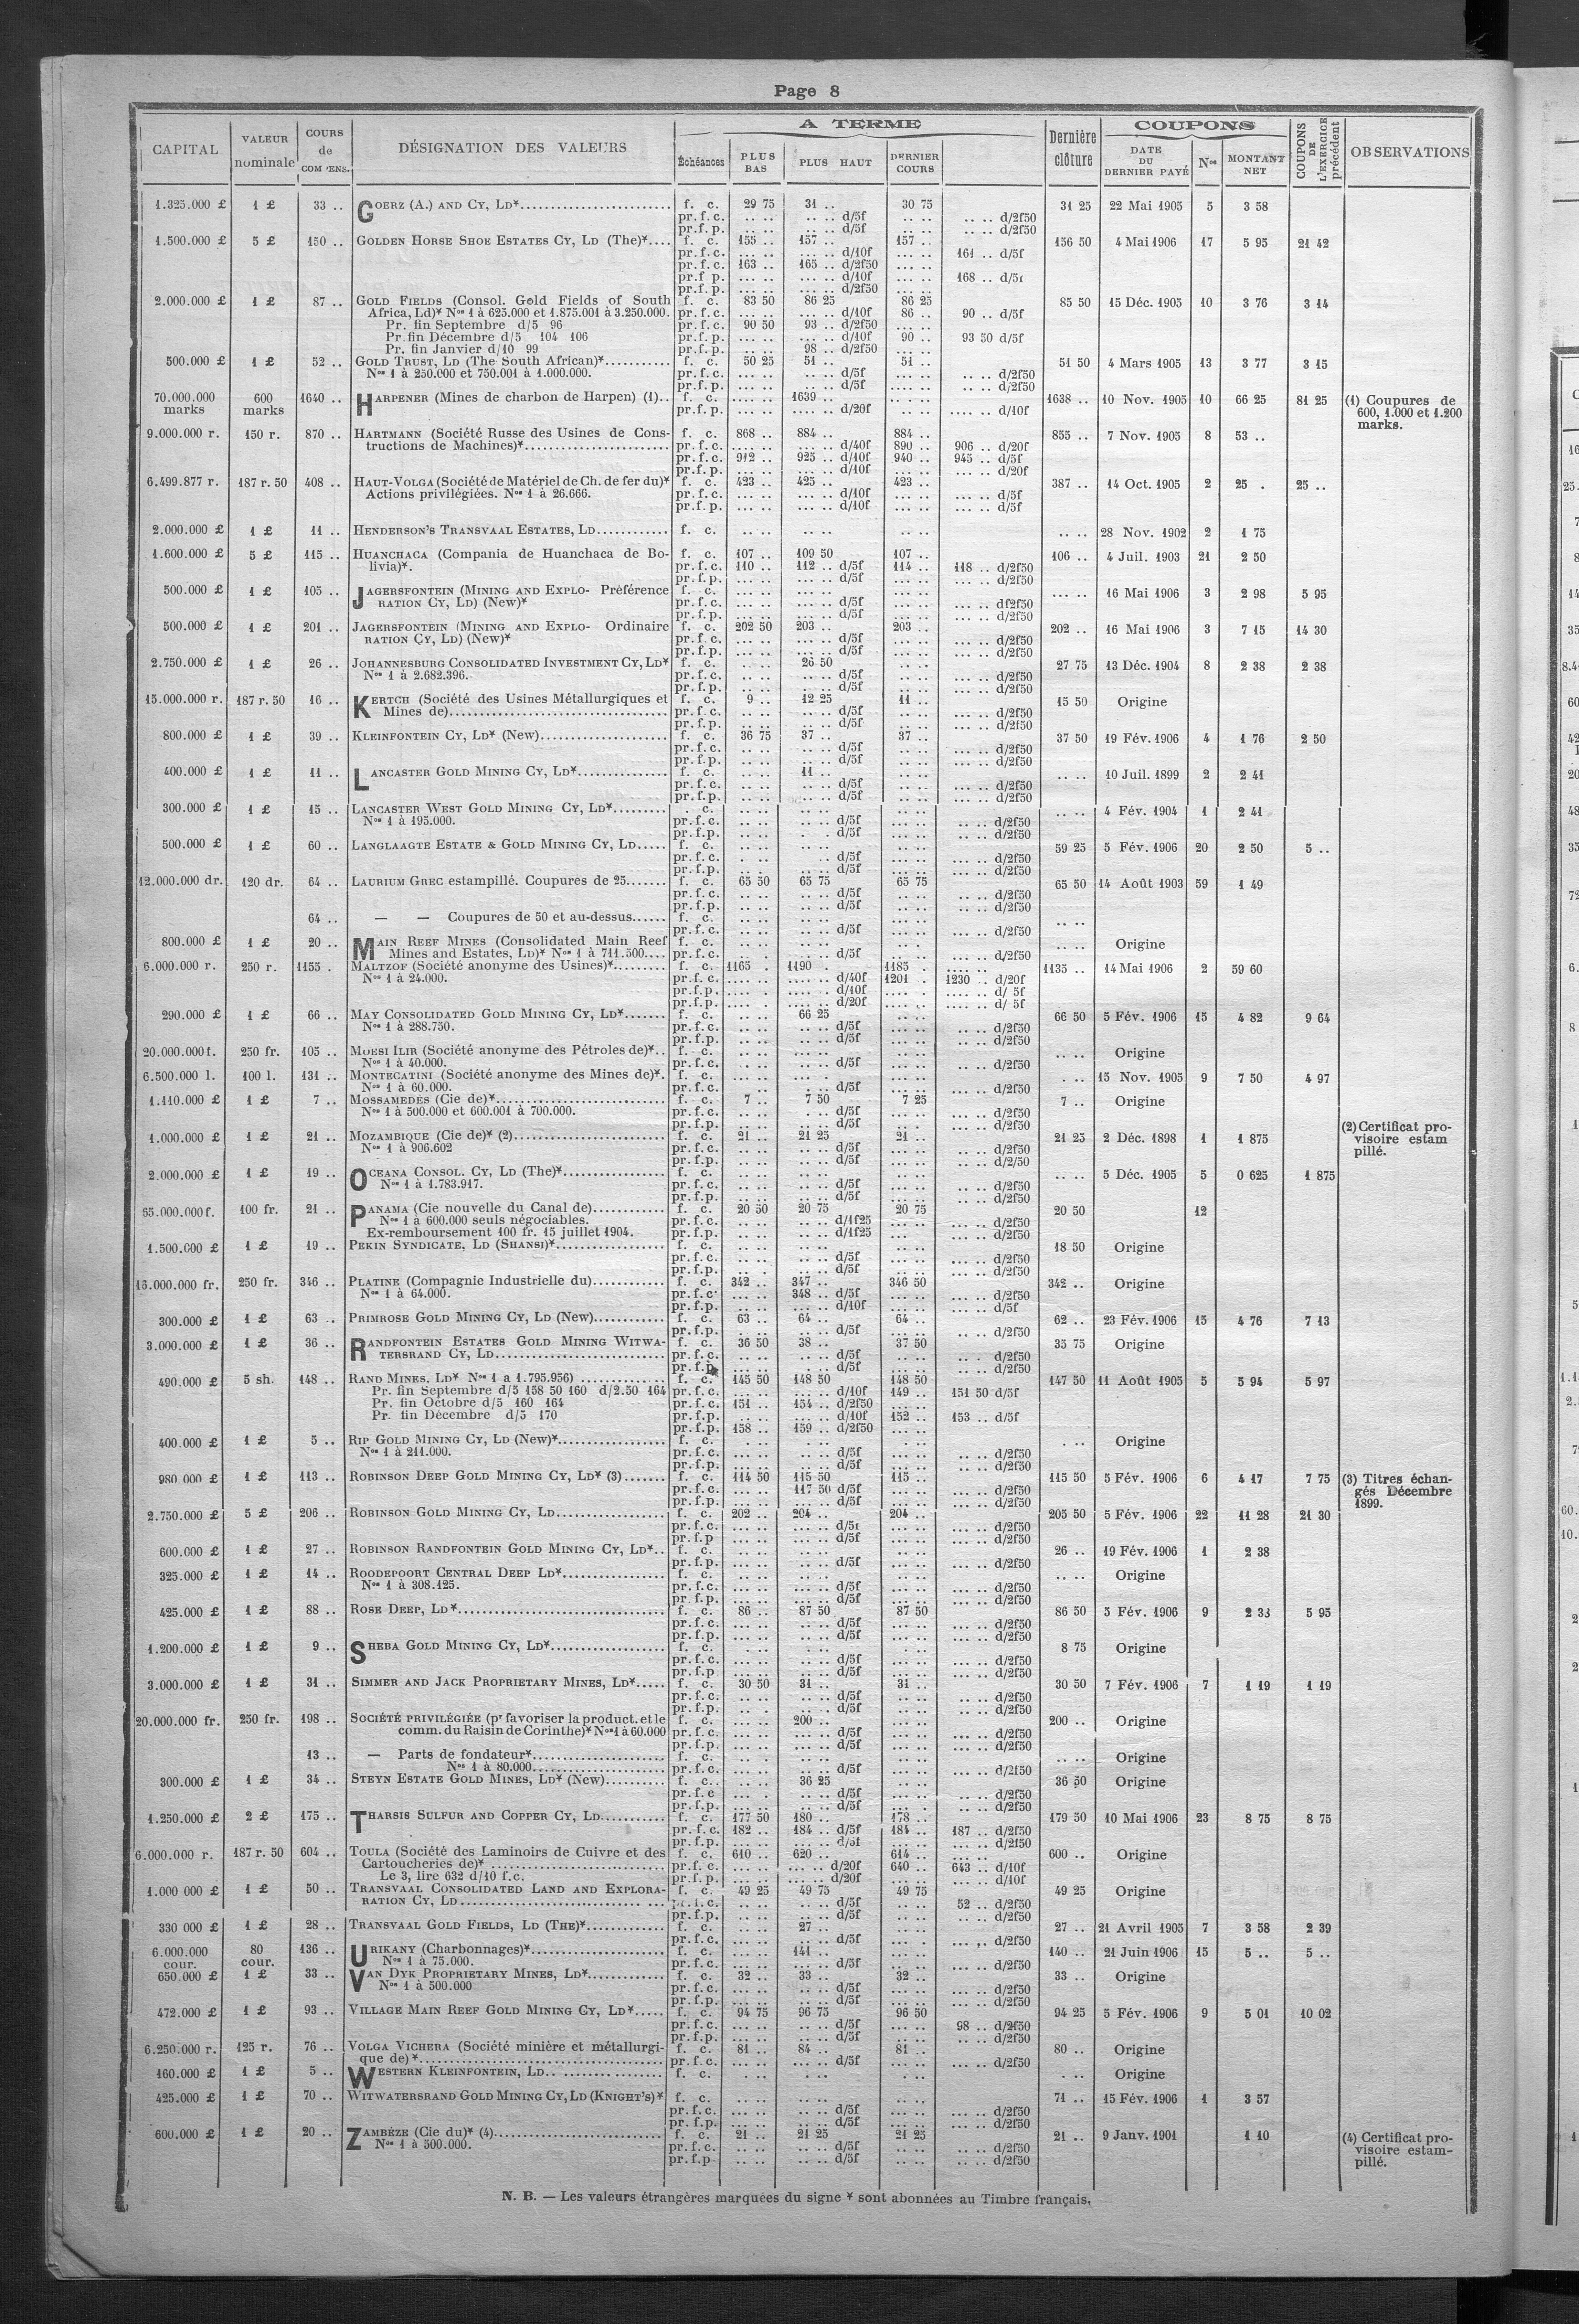 Page 8
CAPITAL | VALEUR nominale | COURS de COMPENS. | DÉSIGNATION DES VALEURS | A TERME | Dernière clôture | COUPONS | COUPONS DE L'EXERCICE précédent | OBSERVATIONS
Échéances | PLUS BAS | PLUS HAUT | DERNIER COURS | DATE DU DERNIER PAYÉ | Nos | MONTANT NET
1.325.000 £ | 1 £ | 33 .. | GOERZ (A.) AND CY, LD* | f. c. | 29 75 | 31 .. | 30 75 | 31 25 | 22 Mai 1905 | 5 | 3 58
pr. f. c. | .. .. | .. .. d/5f | .. .. | .. .. d/2f50
pr. f. p. | .. .. | .. .. d/5f | .. .. | .. .. d/2f50
1.500.000 £ | 5 £ | 150 .. | GOLDEN HORSE SHOE ESTATES CY, LD (The)* | f. c. | 155 .. | 157 .. | 157 .. | 156 50 | 4 Mai 1906 | 17 | 5 95 | 21 42
pr. f. c. | ... .. | ... .. d/10f | ... .. | 161 .. d/5f
pr. f. c. | 163 .. | 165 .. d/2f50 | ... ..
pr. f. p. | ... .. | ... .. d/10f | ... .. | 168 .. d/5f
pr. f. p. | ... .. | ... .. d/2f50 | ... ..
2.000.000 £ | 1 £ | 87 .. | GOLD FIELDS (Consol. Gold Fields of South | f. c. | 83 50 | 86 25 | 86 25 | 85 50 | 15 Déc. 1905 | 10 | 3 76 | 3 14
Africa, Ld)* Nos 1 à 625.000 et 1.875.001 à 3.250.000. | pr. f. c. | ... .. | ... .. d/10f | 86 .. | 90 .. d/5f
Pr. fin Septembre d/5 96 | pr. f. c. | 90 50 | 93 .. d/2f50 | ... ..
Pr. fin Décembre d/5 104 106 | pr. f. p. | ... .. | ... .. d/10f | 90 .. | 93 50 d/5f
Pr. fin Janvier d/10 99 | pr. f. p. | .. .. | 98 .. d/2f50 | ... ..
500.000 £ | 1 £ | 52 .. | GOLD TRUST, LD (The South African)* | f. c. | 50 25 | 51 .. | 51 .. | 51 50 | 4 Mars 1905 | 13 | 3 77 | 3 15
Nos 1 à 250.000 et 750.001 à 1.000.000. | pr. f. c. | ... .. | .. .. d/5f | ... .. | .. .. d/2f50
pr. f. p. | ... .. | .. .. d/5f | ... .. | .. .. d/2f50
70.000.000 marks | 600 marks | 1640 .. | HARPENER (Mines de charbon de Harpen) (1).. | f. c. | .... .. | 1639 .. | .... .. | 1638 .. | 10 Nov. 1905 | 10 | 66 25 | 81 25 | (1) Coupures de 600, 1.000 et 1.200 marks.
pr. f. p. | .... .. | .... .. d/20f | .. .. | .... .. d/10f
9.000.000 r. | 150 r. | 870 .. | HARTMANN (Société Russe des Usines de Cons- | f. c. | 868 .. | 884 .. | 884 .. | 855 .. | 7 Nov. 1905 | 8 | 53 ..
tructions de Machines)* | pr. f. c. | ... .. | ... .. d/40f | 890 .. | 906 .. d/20f
pr. f. c. | 912 .. | 925 .. d/10f | 940 .. | 945 .. d/5f
pr. f. p. | ... .. | ... .. d/10f | ... .. | ... .. d/20f
6.499.877 r. | 187 r. 50 | 408 .. | HAUT-VOLGA (Société de Matériel de Ch. de fer du)* | f. c. | 423 .. | 425 .. | 423 .. | 387 .. | 14 Oct. 1905 | 2 | 25 . | 25 ..
Actions privilégiées. Nos 1 à 26.666. | pr. f. c. | ... .. | ... .. d/10f | ... .. | ... .. d/5f
pr. f. p. | ... .. | ... .. d/10f | ... .. | ... .. d/5f
2.000.000 £ | 1 £ | 11 .. | HENDERSON'S TRANSVAAL ESTATES, LD | f. c. | .. .. | .. .. | .. .. | .. .. | 28 Nov. 1902 | 2 | 1 75
1.600.000 £ | 5 £ | 115 .. | HUANCHACA (Compania de Huanchaca de Bo- | f. c. | 107 .. | 109 50 | 107 .. | 106 .. | 4 Juil. 1903 | 21 | 2 50
livia)*. | pr. f. c. | 110 .. | 112 .. d/5f | 114 .. | 118 .. d/2f50
pr. f. p. | ... .. | ... .. d/5f | ... .. | ... .. d/2f50
500.000 £ | 1 £ | 105 .. | JAGERSFONTEIN (MINING AND EXPLO- Préférence | f. c. | ... .. | ... .. | ... .. | ... .. | 16 Mai 1906 | 3 | 2 98 | 5 95
RATION CY, LD) (New)* | pr. f. c. | ... .. | ... .. d/5f | ... .. | ... .. df2f50
pr. f. p. | ... .. | ... .. d/5f | ... .. | ... .. d/2f50
500.000 £ | 1 £ | 201 .. | JAGERSFONTEIN (MINING AND EXPLO- Ordinaire | f. c. | 202 50 | 203 .. | 203 .. | 202 .. | 16 Mai 1906 | 3 | 7 15 | 14 30
RATION CY, LD) (New)* | pr. f. c. | ... .. | ... .. d/5f | ... .. | ... .. d/2f50
pr. f. p. | ... .. | ... .. d/5f | ... .. | ... .. d/2f50
2.750.000 £ | 1 £ | 26 .. | JOHANNESBURG CONSOLIDATED INVESTMENT CY, LD* | f. c. | .. .. | 26 50 | .. .. | 27 75 | 13 Déc. 1904 | 8 | 2 38 | 2 38
Nos 1 à 2.682.396. | pr. f. c. | .. .. | .. .. d/5f | .. .. | ... .. d/2f50
pr. f. p. | .. .. | .. .. d/5f | .. .. | ... .. d/2f50
15.000.000 r. | 187 r. 50 | 16 .. | KERTCH (Société des Usines Métallurgiques et | f. c. | 9 .. | 12 25 | 11 .. | 15 50 | Origine
Mines de) | pr. f. c. | .. .. | .. .. d/5f | .. .. | ... .. d/2f50
pr. f. p. | .. .. | .. .. d/5f | .. .. | ... .. d/2f50
800.000 £ | 1 £ | 39 .. | KLEINFONTEIN CY, LD* (New) | f. c. | 36 75 | 37 .. | 37 .. | 37 50 | 19 Fév. 1906 | 4 | 1 76 | 2 50
pr. f. c. | .. .. | .. .. d/5f | .. .. | ... .. d/2f50
pr. f. p. | .. .. | .. .. d/5f | .. .. | ... .. d/2f50
400.000 £ | 1 £ | 11 .. | LANCASTER GOLD MINING CY, LD* | f. c. | .. .. | 11 .. | .. .. | .. .. | 10 Juil. 1899 | 2 | 2 41
pr. f. c. | .. .. | .. .. d/5f | .. .. | ... .. d/2f50
pr. f. p. | .. .. | .. .. d/5f | .. .. | ... .. d/2f50
300.000 £ | 1 £ | 15 .. | LANCASTER WEST GOLD MINING CY, LD* | . c. | .. .. | .. .. | .. .. | .. .. | 4 Fév. 1904 | 1 | 2 41
Nos 1 à 195.000. | pr. f. c. | .. .. | .. .. d/5f | ... .. | .. .. d/2f50
pr. f. p. | .. .. | .. .. d/5f | ... .. | .. .. d/2f50
500.000 £ | 1 £ | 60 .. | LANGLAAGTE ESTATE & GOLD MINING CY, LD | f. c. | .. .. | .. .. | .. .. | 59 25 | 5 Fév. 1906 | 20 | 2 50 | 5 ..
pr. f. c. | . .. | .. d/5f | .. .. | ... .. d/2f50
pr. f. p. | .. .. | .. .. d/5f | .. .. | ... .. d/2f50
12.000.000 dr. | 120 dr. | 64 .. | LAURIUM GREC estampillé. Coupures de 25 | f. c. | 65 50 | 65 75 | 65 75 | 65 50 | 14 Août 1903 | 59 | 1 49
pr. f. c. | .. .. | .. .. d/5f | .. .. | .. .. d/2f50
pr. f. p. | .. .. | .. .. d/5f | .. .. | .. .. d/2f50
64 .. | — — Coupures de 50 et au-dessus | f. c. | .. .. | .. .. | .. .. | .. ..
pr. f. c. | .. .. | .. .. d/5f | .. .. | ... .. d/2f50
800.000 £ | 1 £ | 20 .. | MAIN REEF MINES (Consolidated Main Reef | f. c. | .. .. | .. .. | .. . | .. .. | Origine
Mines and Estates, LD)* Nos 1 à 711.500 | pr. f. c. | . .. | .. .. d/5f | .. .. | ... .. d/2f50
6.000.000 r. | 250 r. | 1155 . | MALTZOF (Société anonyme des Usines)* | f. c. | 1165 . | 1190 . | 1185 . | 1135 .. | 14 Mai 1906 | 2 | 59 60
Nos 1 à 24.000. | pr. f. c. | .... .. | .... .. d/40f | 1201 . | 1230 .. d/20f
pr. f. p. | .... . | .... .. d/10f | .... . | .... .. d/ 5f
pr. f. p. | .... . | .... .. d/20f | .... .. | .... .. d/ 5f
290.000 £ | 1 £ | 66 .. | MAY CONSOLIDATED GOLD MINING CY, LD* | f. c. | .. .. | 66 25 | .. .. | 66 50 | 5 Fév. 1906 | 15 | 4 82 | 9 64
Nos 1 à 288.750. | pr. f. c. | ... .. | ... .. d/5f | ... .. | .. .. d/2f50
pr. f. p. | ... .. | ... .. d/5f | ... .. | .. .. d/2f50
20.000.000 f. | 250 fr. | 105 .. | MORSI ILIR (Société anonyme des Pétroles de)* | f. c. | ... .. | ... .. | ... .. | .. .. | Origine
Nos 1 à 40.000. | pr. f. c. | ... .. | ... .. d/5f | ... .. | .. .. d/2f50
6.500.000 l. | 100 l. | 131 .. | MONTECATINI (Société anonyme des Mines de)*. | f. c. | ... .. | ... .. | ... .. | . .. | 15 Nov. 1905 | 9 | 7 50 | 4 97
Nos 1 à 60.000. | pr. f. c. | .. .. | . .. d/5f | ... .. | ... .. d/2f50
1.110.000 £ | 1 £ | 7 .. | MOSSAMEDÈS (Cie de)* | f. c. | 7 .. | 7 50 | 7 25 | 7 .. | Origine
Nos 1 à 500.000 et 600.001 à 700.000. | pr. f. c. | .. .. | . .. d/5f | .. .. | ... .. d/2f50
pr. f. p. | .. .. | .. .. d/5f | .. .. | ... .. d/2f50
1.000.000 £ | 1 £ | 21 .. | MOZAMBIQUE (Cie de)* (2) | f. c. | 21 .. | 21 25 | 21 .. | 21 25 | 2 Déc. 1898 | 1 | 1 875 | (2) Certificat pro- visoire estam pillé.
Nos 1 à 906.602 | pr. f. c. | .. .. | .. .. d/5f | .. .. | .. .. d/2f50
pr. f. p. | .. .. | .. .. d/5f | .. .. | .. .. d/2/50
2.000.000 £ | 1 £ | 19 .. | OCEANA CONSOL. CY, LD (The)* | f. c. | .. .. | .. .. | .. .. | .. .. | 5 Déc. 1905 | 5 | 0 625 | 1 875
Nos 1 à 1.783.917. | pr. f. c. | .. .. | .. .. d/5f | .. .. | .. .. d/2f50
pr. f. p. | .. .. | .. .. d/5f | .. .. | .. .. d/2f50
65.000.000 f. | 100 fr. | 21 .. | PANAMA (Cie nouvelle du Canal de) | f. c. | 20 50 | 20 75 | 20 75 | 20 50 | 12
Nos 1 à 600.000 seuls négociables. | pr. f. c. | .. .. | .. .. d/1f25 | ... .. | ... .. d/2f50
Ex-remboursement 100 fr. 15 juillet 1904. | pr. f. p. | .. .. | .. .. d/1f25 | ... .. | ... .. d/2f50
1.500.000 £ | 1 £ | 19 .. | PEKIN SYNDICATE, LD (SHANSI)* | f. c. | .. .. | .. .. | .. .. | 18 50 | Origine
pr. f. c. | .. .. | .. .. d/5f | .. .. | ... .. d/2f50
pr. f. p. | .. . | .. .. d/5f | .. .. | ... .. d/2f50
16.000.000 fr. | 250 fr. | 346 .. | PLATINE (Compagnie Industrielle du) | f. c. | 342 .. | 347 .. | 346 50 | 342 .. | Origine
Nos 1 à 64.000. | pr. f. c. | ... .. | 348 .. d/5f | ... .. | ... .. d/2f50
pr. f. p. | ... .. | ... .. d/10f | ... .. | ... .. d/5f
300.000 £ | 1 £ | 63 .. | PRIMROSE GOLD MINING CY, LD (New) | f. c. | 63 .. | 64 .. | 64 .. | 62 .. | 23 Fév. 1906 | 15 | 4 76 | 7 13
pr. f. p. | . .. | .. .. d/5f | ... .. | .. .. d/2f50
3.000.000 £ | 1 £ | 36 .. | RANDFONTEIN ESTATES GOLD MINING WITWA- | f. c. | 36 50 | 38 .. | 37 50 | 35 75 | Origine
TERSRAND CY, LD | pr. f. c. | .. .. | .. .. d/5f | .. .. | .. . d/2f50
pr. f. p. | .. .. | . .. d/5f | .. .. | .. .. d/2f50
490.000 £ | 5 sh. | 148 .. | RAND MINES. LD* Nos 1 a 1.795.956) | f. c. | 145 50 | 148 50 | 148 50 | 147 50 | 11 Août 1905 | 5 | 5 94 | 5 97
Pr. fin Septembre d/5 158 50 160 d/2.50 164 | pr. f. c. | ... .. | ... .. d/10f | 149 .. | 151 50 d/5f
Pr. fin Octobre d/5 160 164 | pr. f. c. | 151 .. | 154 .. d/2f50 | ... ..
Pr. fin Décembre d/5 170 | pr. f. p. | ... .. | ... .. d/10f | 152 .. | 153 .. d/5f
pr. f. p. | 158 .. | 159 .. d/2f50 | ... ..
400.000 £ | 1 £ | 5 .. | RIP GOLD MINING CY, LD (New)* | f. c. | . .. | . .. | . .. | . .. | Origine
Nos 1 à 211.000. | pr. f. c. | .. .. | .. .. d/5f | .. .. | .. .. d/2f50
pr. f. p. | ... .. | .. .. d/5f | ... .. | .. .. d/2f50
980.000 £ | 1 £ | 113 .. | ROBINSON DEEP GOLD MINING CY, LD* (3) | f. c. | 114 50 | 115 50 | 115 .. | 115 50 | 5 Fév. 1906 | 6 | 4 17 | 7 75 | (3) Titres échan- gés Décembre 1899.
pr. f. c. | ... .. | 117 50 d/5f | ... .. | ... .. d/2f50
pr. f. p. | ... .. | ... .. d/5f | ... .. | ... .. d/2f50
2.750.000 £ | 5 £ | 206 .. | ROBINSON GOLD MINING CY, LD | f. c. | 202 .. | 204 .. | 204 .. | 205 50 | 5 Fév. 1906 | 22 | 11 28 | 21 30
pr. f. c. | ... .. | ... .. d/5f | ... .. | ... .. d/2f50
pr. f. p | ... .. | ... .. d/5f | ... .. | ... .. d/2f50
600.000 £ | 1 £ | 27 .. | ROBINSON RANDFONTEIN GOLD MINING CY, LD* | f. c. | .. .. | .. .. | .. .. | 26 .. | 19 Fév. 1906 | 1 | 2 38
pr. f. p. | .. .. | .. .. d/5f | .. .. | ... .. d/2f50
325.000 £ | 1 £ | 14 .. | ROODEPOORT CENTRAL DEEP LD* | f. c. | .. .. | .. .. | .. .. | .. .. | Origine
Nos 1 à 308.125. | pr. f. c. | ... .. | ... .. d/5f | ... .. | ... .. d/2f50
pr. f. p. | ... .. | ... .. d/5f | ... .. | ... .. d/2f50
425.000 £ | 1 £ | 88 .. | ROSE DEEP, LD* | f. c. | 86 .. | 87 50 | 87 50 | 86 50 | 5 Fév. 1906 | 9 | 2 33 | 5 95
pr. f. c. | ... .. | ... .. d/5f | ... .. | ... .. d/2f50
pr. f. p. | ... .. | ... .. d/5f | ... .. | ... .. d/2f50
1.200.000 £ | 1 £ | 9 .. | SHEBA GOLD MINING CY, LD* | f. c. | . .. | . .. | . .. | 8 75 | Origine
pr. f. c. | ... .. | ... .. d/5f | ... .. | ... .. d/2f50
pr. f. p | ... .. | ... .. d/5f | ... .. | ... .. d/2f50
3.000.000 £ | 1 £ | 31 .. | SIMMER AND JACK PROPRIETARY MINES, LD* | f. c. | 30 50 | 31 .. | 31 .. | 30 50 | 7 Fév. 1906 | 7 | 1 19 | 1 19
pr. f. c. | .. .. | .. .. d/5f | .. .. | .. .. d/2f50
pr. f. p. | .. . | .. .. d/5f | .. .. | .. .. d/2f50
20.000.000 fr. | 250 fr. | 198 .. | SOCIÉTÉ PRIVILÉGIÉE (pr favoriser la product. et le | f. c. | ... .. | 200 .. | ... .. | 200 .. | Origine
comm. du Raisin de Corinthe)* Nos 1 à 60.000 | pr. f. c. | ... .. | ... .. d/5f | ... .. | ... .. d/2f50
pr. f. p. | ... .. | ... .. d/5f | ... .. | ... .. d/2f50
13 .. | — Parts de fondateur* | f. c. | .. . | .. .. | .. .. | .. .. | Origine
Nos 1 à 80.000 | pr. f. c. | .. . | .. .. d/5f | .. .. | ... .. d/2f50
300.000 £ | 1 £ | 34 .. | STEYN ESTATE GOLD MINES, LD* (New) | f. c. | .. .. | 36 25 | .. .. | 36 50 | Origine
pr. f. c | ... . | .. .. d/5f | ... .. | .. .. d/2f50
pr. f. p. | ... .. | .. .. d/5f | ... . | .. .. d/2f50
1.250.000 £ | 2 £ | 175 .. | THARSIS SULFUR AND COPPER CY, LD | f. c. | 177 50 | 180 .. | 178 .. | 179 50 | 10 Mai 1906 | 23 | 8 75 | 8 75
pr. f. c. | 182 .. | 184 .. d/5f | 184 .. | 187 .. d/2f50
pr. f. p. | ... .. | ... .. d/5f | ... .. | ... .. d/2f50
6.000.000 r. | 187 r. 50 | 604 .. | TOULA (Société des Laminoirs de Cuivre et des | f. c. | 610 .. | 620 .. | 614 .. | ... .. | 600 .. | Origine
Cartoucheries de)* | pr. f. c. | ... .. | ... .. d/20f | 640 .. | 643 .. d/10f
Le 3, lire 632 d/10 f.c. | pr. f. p. | ... .. | ... .. d/20f | ... .. | ... .. d/10f
1.000 000 £ | 1 £ | 50 .. | TRANSVAAL CONSOLIDATED LAND AND EXPLORA- | f. c. | 49 25 | 49 75 | 49 75 | 49 25 | Origine
RATION CY, LD | pr. f. c. | .. .. | .. .. d/5f | .. .. | 52 .. d/2f50
pr. f. p. | .. .. | .. .. d/5f | .. .. | .. .. d/2f50
330 000 £ | 1 £ | 28 .. | TRANSVAAL GOLD FIELDS, LD (THE)* | f. c. | .. .. | 27 .. | .. .. | 27 .. | 21 Avril 1905 | 7 | 3 58 | 2 39
pr. f. c. | .. .. | .. .. d/5f | .. .. | ... .. d/2f50
6.000.000 cour. | 80 cour. | 136 .. | URIKANY (Charbonnages)* | f. c. | ... .. | 141 .. | ... .. | 140 .. | 21 Juin 1906 | 15 | 5 .. | 5 ..
Nos 1 à 75.000. | pr. f. c. | ... .. | ... .. d/5f | ... .. | ... .. d/2f50
650.000 £ | 1 £ | 33 .. | VAN DYK PROPRIETARY MINES, LD* | f. c. | 32 .. | 33 .. | 32 .. | 33 .. | Origine
Nos 1 à 500.000 | pr. f. c. | .. .. | .. .. d/5f | .. .. | ... .. d/2f50
pr. f. p. | .. .. | .. .. d/5f | .. .. | ... .. d/2f50
472.000 £ | 1 £ | 93 .. | VILLAGE MAIN REEF GOLD MINING CY, LD* | f. c. | 94 75 | 96 75 | 96 50 | 94 25 | 5 Fév. 1906 | 9 | 5 01 | 10 02
pr. f. c. | ... .. | ... .. d/5f | ... .. | 98 .. d/2f50
pr. f. p. | ... .. | ... .. d/5f | ... .. | .. .. d/2f50
6.250.000 r. | 125 r. | 76 .. | VOLGA VICHERA (Société minière et métallurgi- | f. c. | 81 .. | 84 .. | 81 .. | 80 .. | Origine
que de)* | pr. f. c. | ... .. | ... .. d/5f | ... .. | ... .. d/2f50
160.000 £ | 1 £ | 5 .. | WESTERN KLEINFONTEIN, LD | f. c. | . .. | . .. | . .. | . .. | Origine
425.000 £ | 1 £ | 70 .. | WITWATERSRAND GOLD MINING CY, LD (KNIGHT'S)* | f. c. | .. .. | .. .. | .. .. | 71 .. | 15 Fév. 1906 | 1 | 3 57
pr. f. c. | ... .. | ... .. d/5f | ... .. | ... .. d/2f50
pr. f. p. | ... .. | ... .. d/5f | ... .. | ... .. d/2f50
600.000 £ | 1 £ | 20 .. | ZAMBÈZE (Cie du)* (4) | f. c. | 21 .. | 21 25 | 21 25 | 21 .. | 9 Janv. 1901 | 1 10 | (4) Certificat pro- visoire estam- pillé.
Nos 1 à 500.000. | pr. f. c. | .. .. | .. .. d/5f | .. .. | .. .. d/2f50
pr. f. p. | .. .. | .. .. d/5f | .. .. | .. .. d/2f50
N. B. — Les valeurs étrangères marquées du signe * sont abonnées au Timbre français.